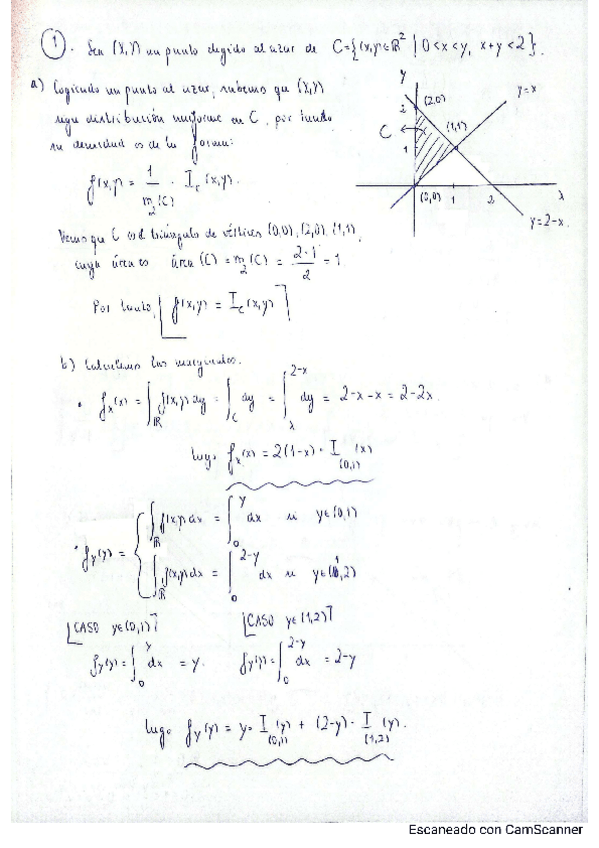 1. Sea (X,Y) un punto elegido al azar de C={(x,y)∈ℝ² | 0<x<y, x+y<2}.
a) Cogiendo un punto al azar, sabemos que (X,Y)
sigue distribución uniforme en C, por tanto
su densidad es de la forma:
f(x,y) = 1/m₂(C) · I_C(x,y).
y
2
(2,0)
y=x
C
1
(1,1)
(0,0) 1 2 x
y=2-x
Vemos que C es el triángulo de vértices (0,0), (2,0), (1,1),
cuya área es área(C) = m₂(C) = 2·1/2 = 1
Por tanto, f(x,y) = I_C(x,y)
b) Calculemos las marginales.
• f_X(x) = ∫_ℝ f(x,y) dy = ∫_C dy = ∫_x^{2-x} dy = 2-x-x = 2-2x
luego f_X(x) = 2(1-x) · I_(0,1)(x)
• f_Y(y) = { ∫_ℝ f(x,y) dx = ∫_0^y dx si y∈(0,1)
∫_ℝ f(x,y) dx = ∫_0^{2-y} dx si y∈(1,2)
CASO y∈(0,1) CASO y∈(1,2)
f_Y(y) = ∫_0^y dx = y. f_Y(y) = ∫_0^{2-y} dx = 2-y
luego f_Y(y) = y · I_(0,1)(y) + (2-y) · I_(1,2)(y).
Escaneado con CamScanner